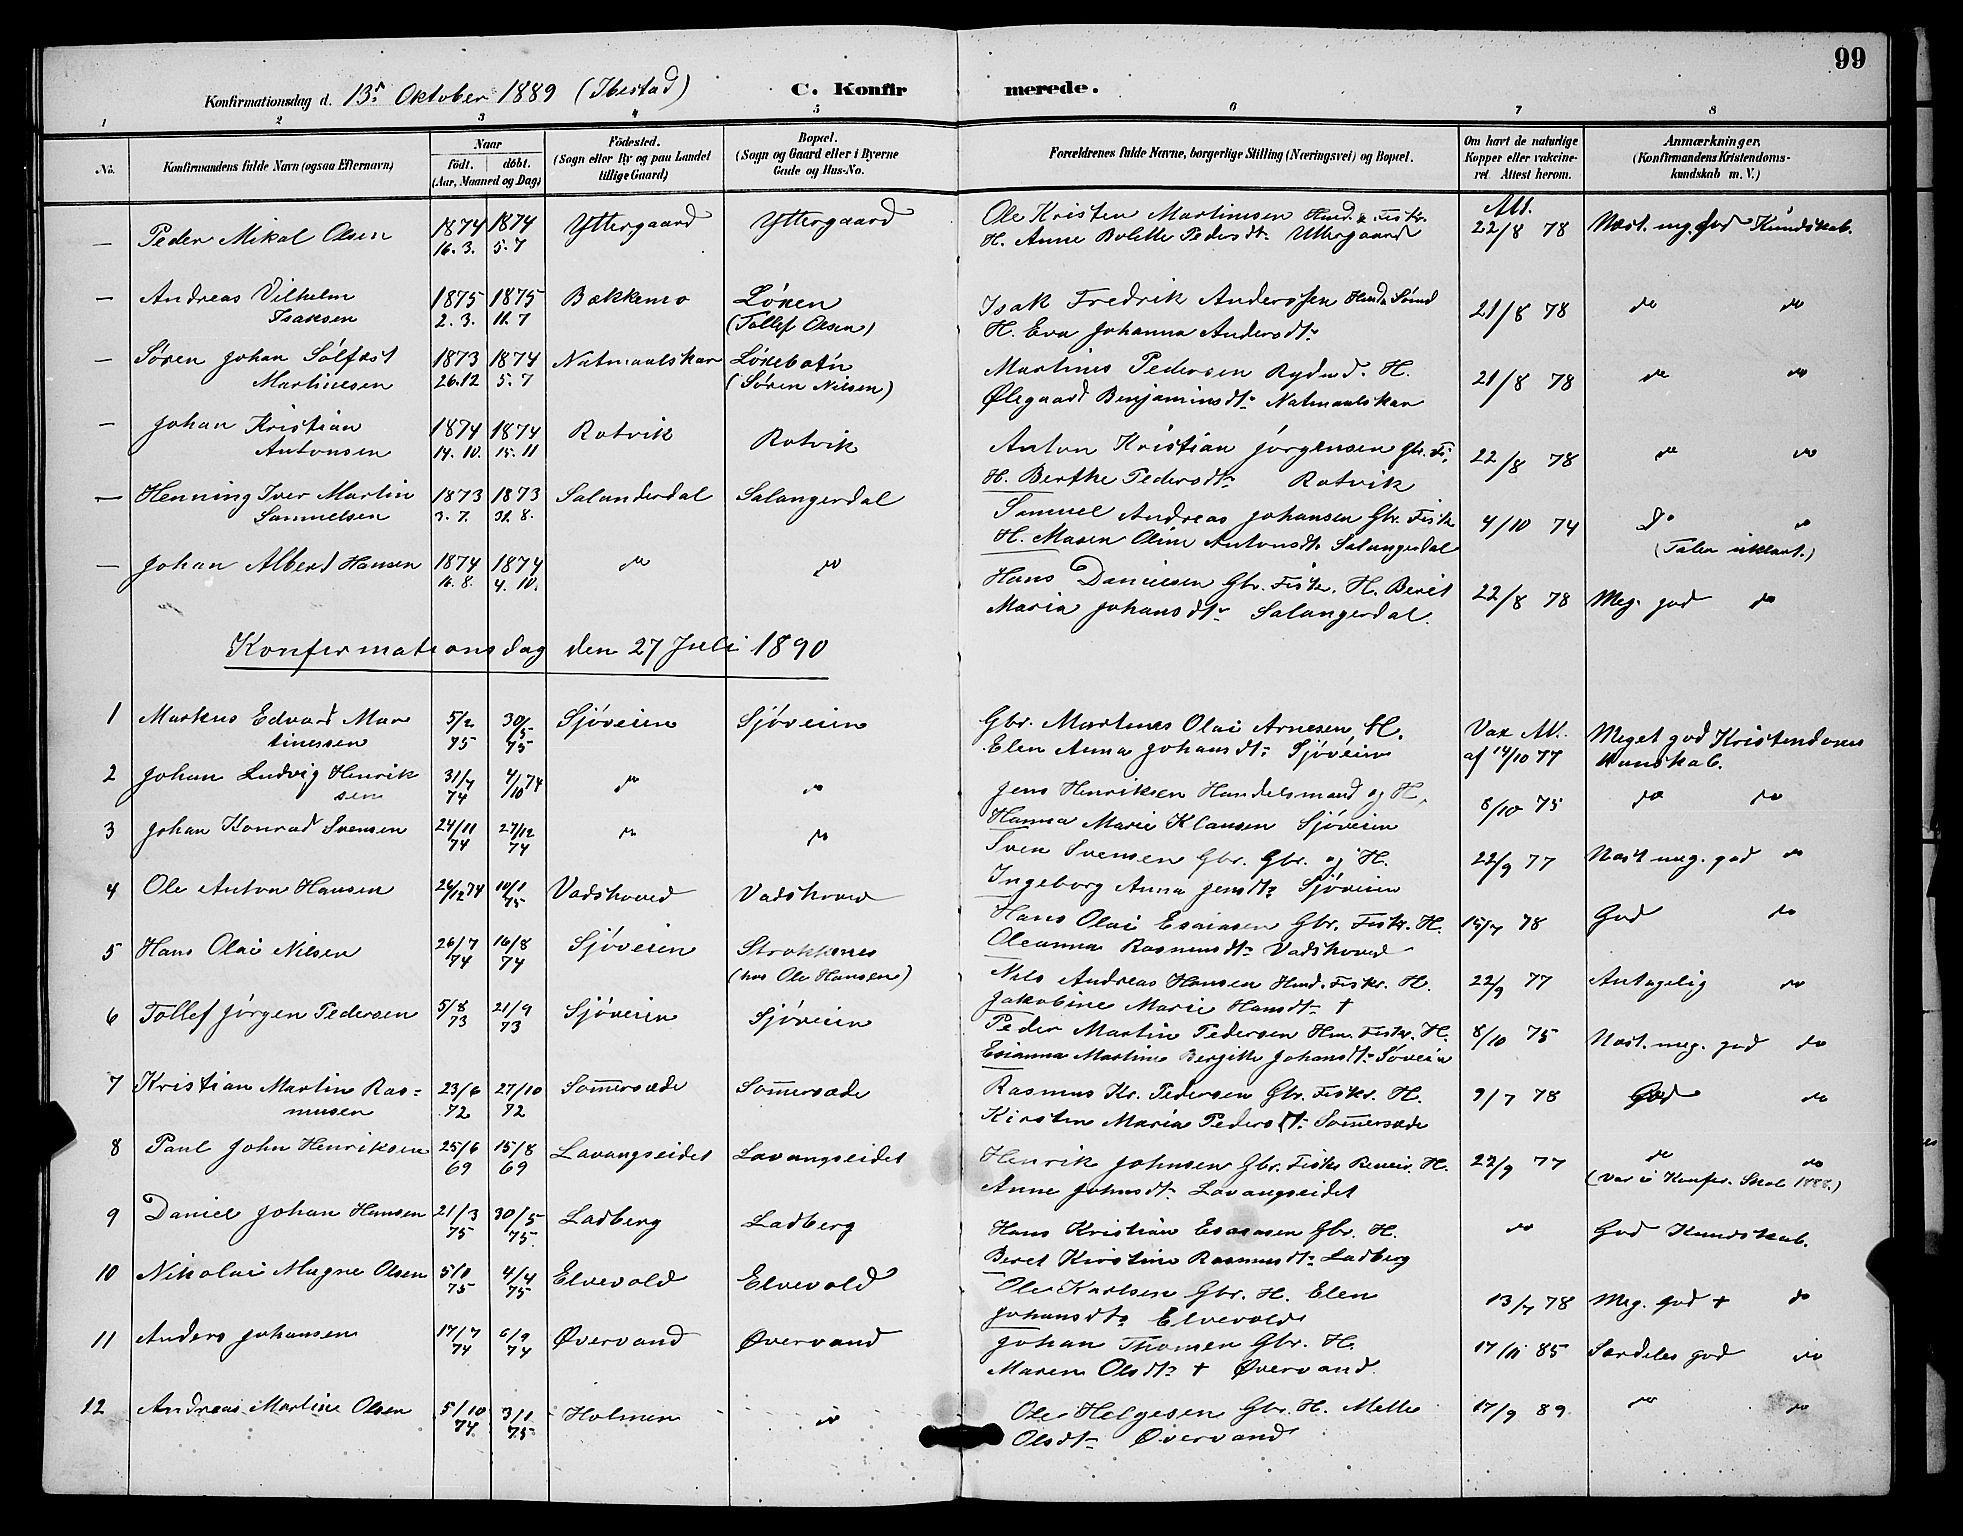 99
Konfirmationsdag d. 13de Oktober 1889 (Ibestad) C. Konfirmerede.
1 2 3 4 5 6 7 8
No. Konfirmandens fulde Navn (ogsaa Efternavn) Naar födt. döbt. (Aar, Maaned og Dag) Födested. (Sogn eller By og paa Landet tillige Gaard) Bopæl. (Sogn og Gaard eller i Byerne Gade og Hus-No. Forældrenes fulde Navne, borgerlige Stilling (Næringsvei) og Bopæl. Om havt de naturlige Kopper eller vakcineret. Attest herom. Anmærkninger, (Konfirmandens Kristendomskundskab m. V.)
— Peder Mikal Olsen 1874 16. 3. 1874 5. 7 Yttergaard Yttergaard Ole Kristen Martinusen Husd. & Fiskr. Att. 22/8 78 Næst. meg. god Kundskab.
H. Anne Bolette Pedersdt. Yttergaard
— Andreas Vilhelm 1875 1875 Bækkemo Løxen Isak Fredrik Anderssen 21/8 78 do do
Isaksen 2. 3. 11. 7 (Tollef Olsen) H. Eva Johanna Andersdt.
— Søren Johan Sólfæst 1873 1874 Natmaalskar Løxebotn Martines Pedersen Rydnd. H. 21/8 78 do do
Martinesen 26. 12 5. 7 (Søren Nilsen) Ølegaard Benjaminsdt. Natmaalskar
— Johan Kristian 1874 1874 Rotvik Rotvik Anton Kristian Jørgensen Gbr. Fi. 22/8 78 do do
Antonsen 14. 10. 15. 11 H. Berthe Pedersdt. Rotvik
— Henning Iver Martin 1873 1873 Salanderdal Salangerdal Samuel Andreas Johansen Gbr. Fisk 4/10 74 Do do
Samuelsen 3. 7. 31. 8. H. Masen Oline Antonsdt. Salangerdal (Taler uklart.)
— Johan Albert Hansen 1874 1874 do do Hans Danielsen Gbr. Fiskr. H. Berit 22/8 78 Meg. god do
4. 10. Maria Johansdt. Salangerdal.
Konfermationsdag den 27 Juli 1890
1 Markus Edvard Mar 5/2 75 30/5 75 Sjøveien Sjøveien Gbr. Martines Olai Arnesen H. Vax Att. Meget god Kristendoms
tinessen Elen Anna Johansdt. Sjøveien af 14/10 77 Kunskab.
2 Johan Ludvig Henrik 31/7 74 4/10 74 do do Jens Henriksen Handelsmand og H. 8/10 75 do do
sen Hanna Marie Klausen Sjøveien
3 Johan Konrad Svensen 24/11 74 27/12 74 do do Sven Svensen Gbr. Gbr. og H. 22/9 77 Næst meg. god do
Ingeborg Anna Jensdt. Sjøveien
4 Ole Anton Hansen 26/12 74 10/1 75 Vadshoved Vadshoved Hans Olai Esaiasen Gbr. Fiskr. H. 15/7 78 God do
Oleanna Rasmusdt. Vadshoved
5 Hans Olai Nilsen 26/7 74 16/8 74 Sjøveien Strokknes Nils Andreas Hansen Husd. Fiskr. H. 22/9 77 Antagelig do
(hos Ole Hansen) Jakobine Marie Hansdt. †
6 Tollef Jørgen Pedersen 5/8 73 21/9 73 Sjøveien Sjøveien Peder Martin Pedersen Hm. Fiskr. H. 8/10 75 Næst. meg. god do
Esianna Martine Bergitte Johansdt. Søveien
7 Kristian Martin Ras= 23/6 72 27/10 72 Som̄ersæde Som̄ersæde Rasmus Kr. Pedersen Gbr. Fiskr. H. 9/7 78 God do
musen Kirsten Maria Pedersdt. Som̄ersæde
8 Paul John Henriksen 25/6 69 15/8 69 Lavangseidet Lavangseidet Henrik Johnsen Gbr. Fiskr H. 22/9 77 do do
Anne Johnsdt. Lavangseidet (var i Konfer. Skol 1888.)
9 Daniel Johan Hansen 21/3 75 30/5 75. Ladberg Ladberg Hans Kristian Esaiasen Gbr. H. do God Kundskab.
Beret Kirstine Rasmusdt. Ladberg
10 Nikolai Magne Olsen 5/1 75 4/4 75 Elvevold Elvevold Ole Karlsen Gbr. H. Elen 13/7 78 Meg. god + do
Johansdt. Elvevold
11 Anders Johansen 17/7 74 6/9 74 Øvervand Øvervand Johan Thomsen Gbr. H. 17/11 85 Særdeles god do
Maren Olsdt. † Øvervand.
12 Andreas Martin Olsen 5/10 74 3/1 75 Holmen do Ole Helgesen Gbr. H. Mette 17/9 89 do do
Olsdt. Øvervand